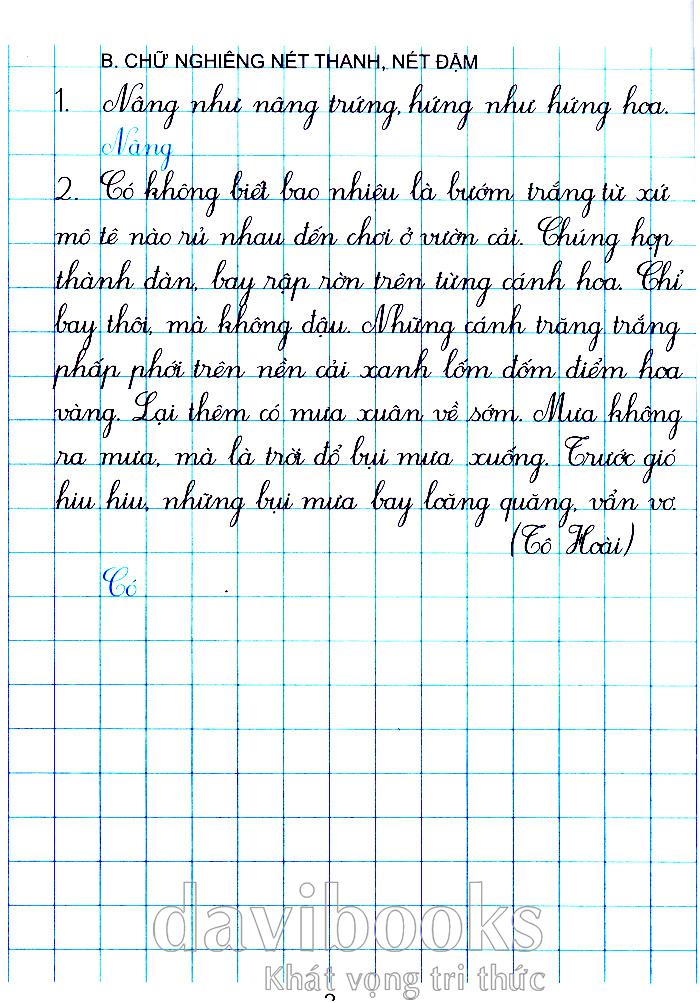 B. CHỮ NGHIÊNG NÉT THANH, NÉT ĐẬM
1. Nâng như nâng trứng, hứng như hứng hoa.
Nâng
2. Có không biết bao nhiêu là bướm trắng từ xứ
mô tê nào rủ nhau đến chơi ở vườn cải. Chúng họp
thành đàn, bay rập rờn trên từng cánh hoa. Chỉ
bay thôi, mà không đậu. Những cánh trăng trắng
phấp phới trên nền cải xanh lốm đốm điểm hoa
vàng. Lại thêm có mưa xuân về sớm. Mưa không
ra mưa, mà là trời đổ bụi mưa xuống. Trước gió
hiu hiu, những bụi mưa bay loăng quăng, vẩn vơ.
(Tô Hoài)
Có
davibooks
Khát vọng tri thức